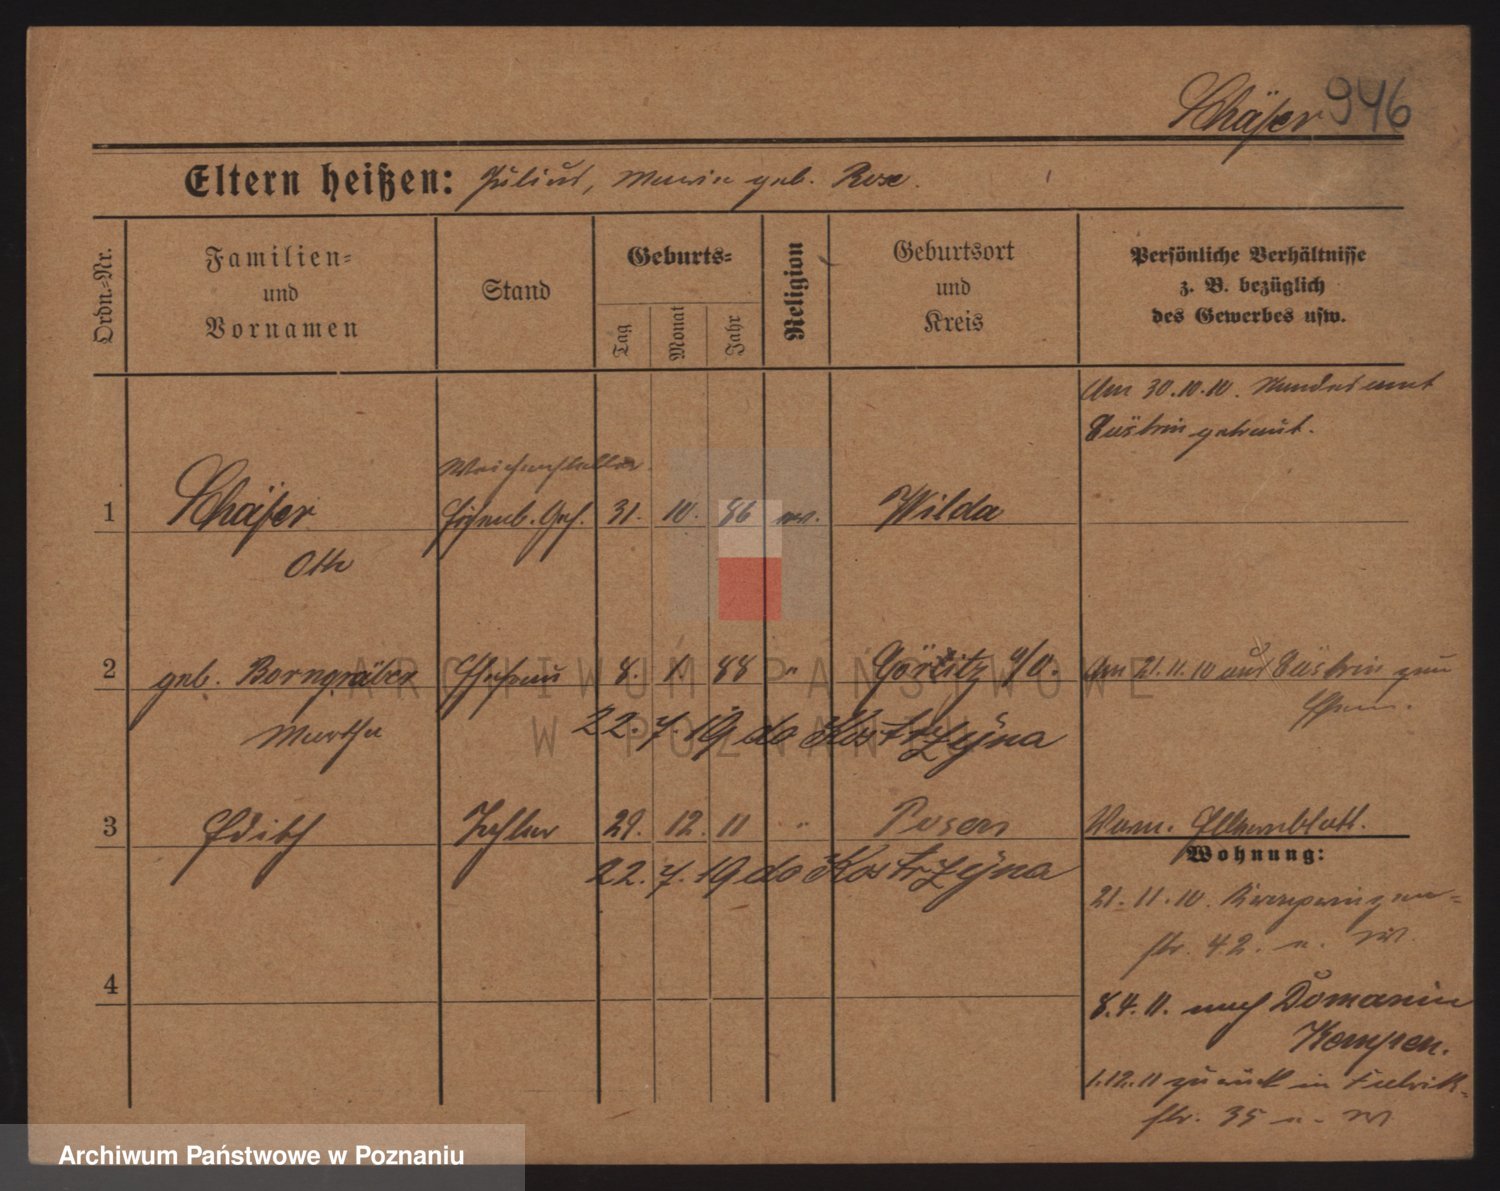 Schäfer 946
Eltern heißen: Julius, Maria geb. Rose.
Ordn.-Nr.
Familien-
und
Vornamen
Stand
Geburts-
Tag
Monat
Jahr
Religion
Geburtsort
und
Kreis
Persönliche Verhältnisse
z. B. bezüglich
des Gewerbes usw.
Am 30.10.10. Standesamt
Cüstrin getraut.
Weichensteller
1 Schäfer Eisenb. Geh. 31. 10. 86 ev. Wilda
Otto
2 geb. Borngräber Ehefrau 8. 1. 88 " Görlitz Am 21.11.10 aus Cüstrin zum
Martha 22. 7. 19 do Kostrzyna Ehem.
3 Edith Tochter 29. 12. 11 " Posen Vorm. Elternblatt.
22. 7. 19 do Kostrzyna
Wohnung:
21. 11. 10.
str. 42. n. W.
4
8.4.11. nach Domanin
Kempen.
1.12.11 zurück in Fabrik-
str. 35 n. W
ARCHIWUM PAŃSTWOWE
W POZNANIU
Archiwum Państwowe w Poznaniu